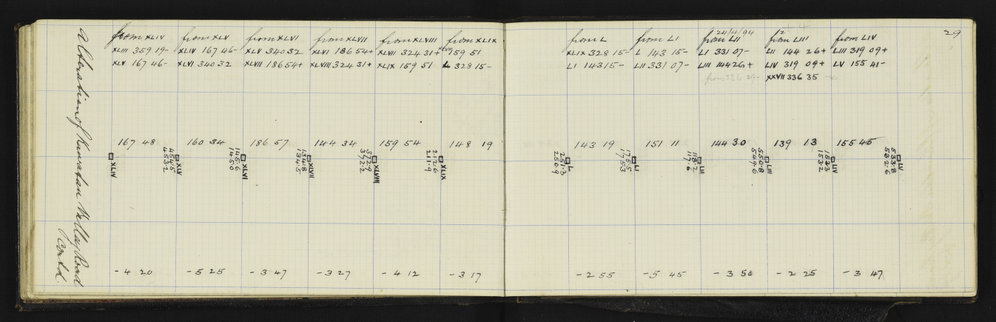 from XLIV
XLIII 359 19-
XLV 167 46-
from XLV
XLIV 167 46-
XLVI 340 32
from XLVI
XLV 340 32
XLVII 186 54+
from XLVII
XLVI 186 54+
XLVIII 324 31+
from XLVIII
XLVII 324 31+
XLIX 159 51
from XLIX
159 51
L 328 15-
from L
XLIX 328 15-
LI 143 15-
from LI
L 143 15-
LII 331 07-
24/4/94
from LII
LI 331 07-
LIII 144 26+
from LIII
LII 144 26+
LIV 319 09+
XXVII 336 35
from LIV
LIII 319 09+
LV 155 41-
29
167 48
160 34
186 57
144 34
159 54
148 19
143 19
151 11
144 30
139 13
155 45
XLIV
XLV
XLVI
XLVII
XLVIII
XLIX
L
LI
LII
LIII
LIV
LV
- 4 20
- 5 25
- 3 47
- 3 27
- 4 12
- 3 17
- 2 55
- 5 45
- 3 50
- 2 25
- 3 47
of
Valley Road
Contd.